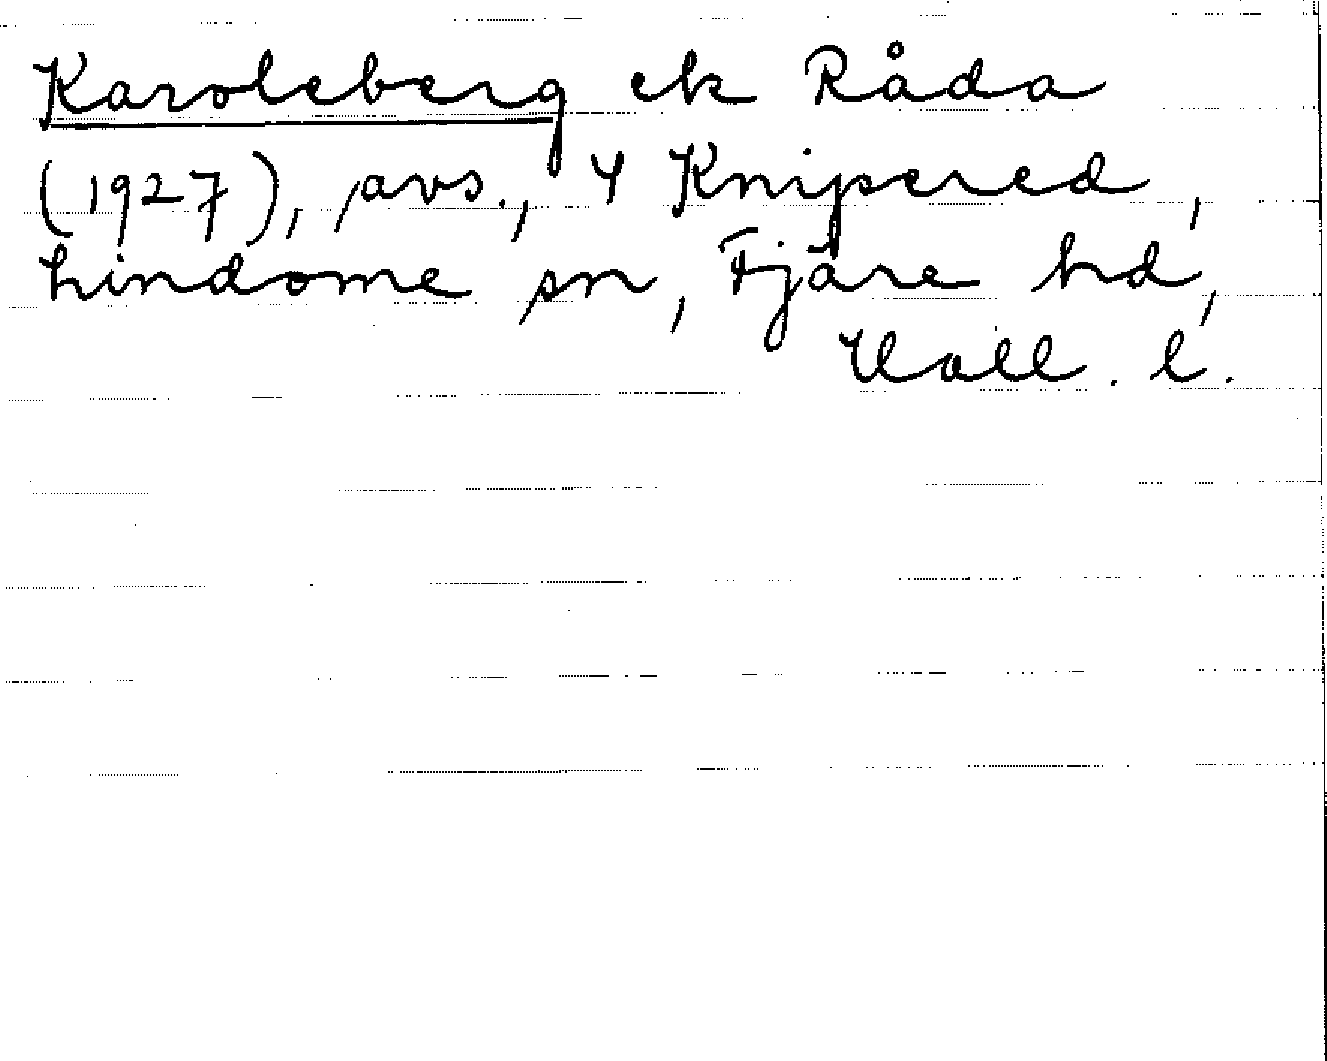 Karoleberg ek Råda
(1927), avs., 4 Knipered,
Lindome sn, Fjäre hd,
Hall. l.